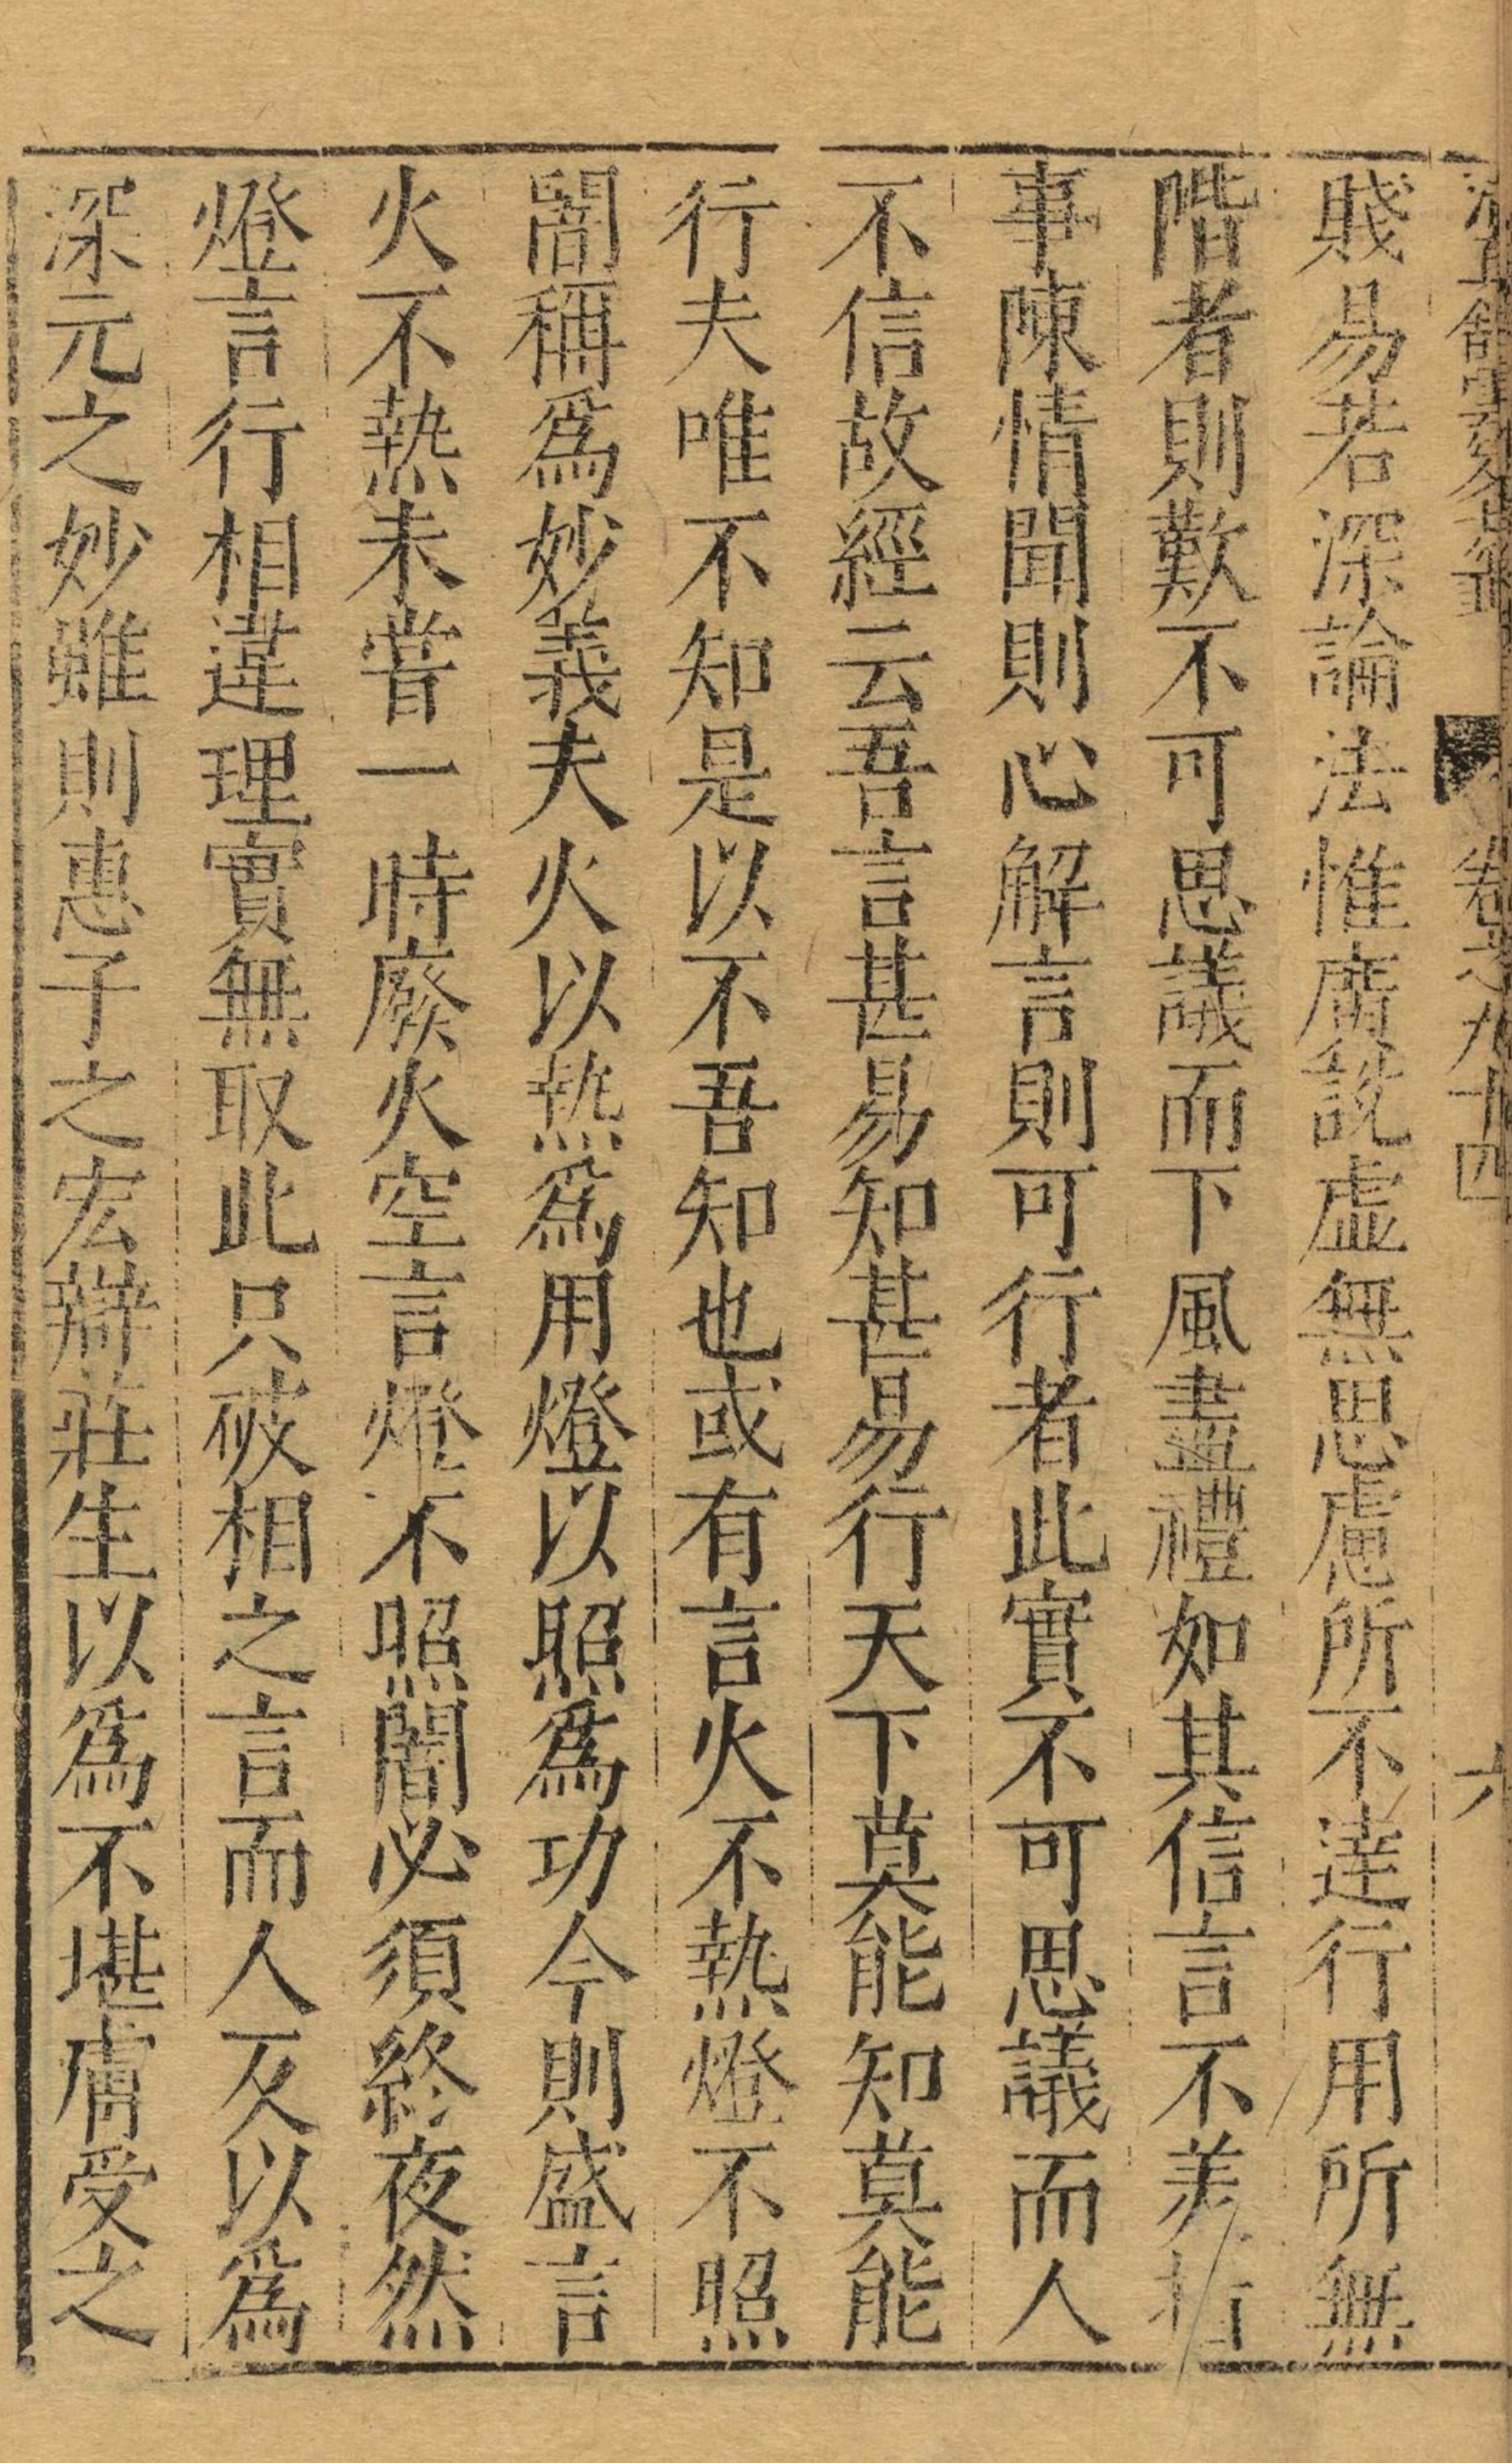 卷之九十四
六
賤易若深論法惟廣說虛無思慮所不達行用所無
階者則歎不可思議而下風盡禮如其信言不美指
事陳情聞則心解言則可行者此實不可思議而人
不信故經云吾言甚易知甚易行天下莫能知莫能
行夫唯不知是以不吾知也或有言火不熱燈不照
闇稱爲妙義夫火以熱爲用燈以照爲功今則盛言
火不熱未嘗一時廢火空言燈不照闇必須終夜然
燈言行相違理實無取此只破相之言而人反以爲
深元之妙雖則惠子之宏辯莊生以爲不堪膚受之